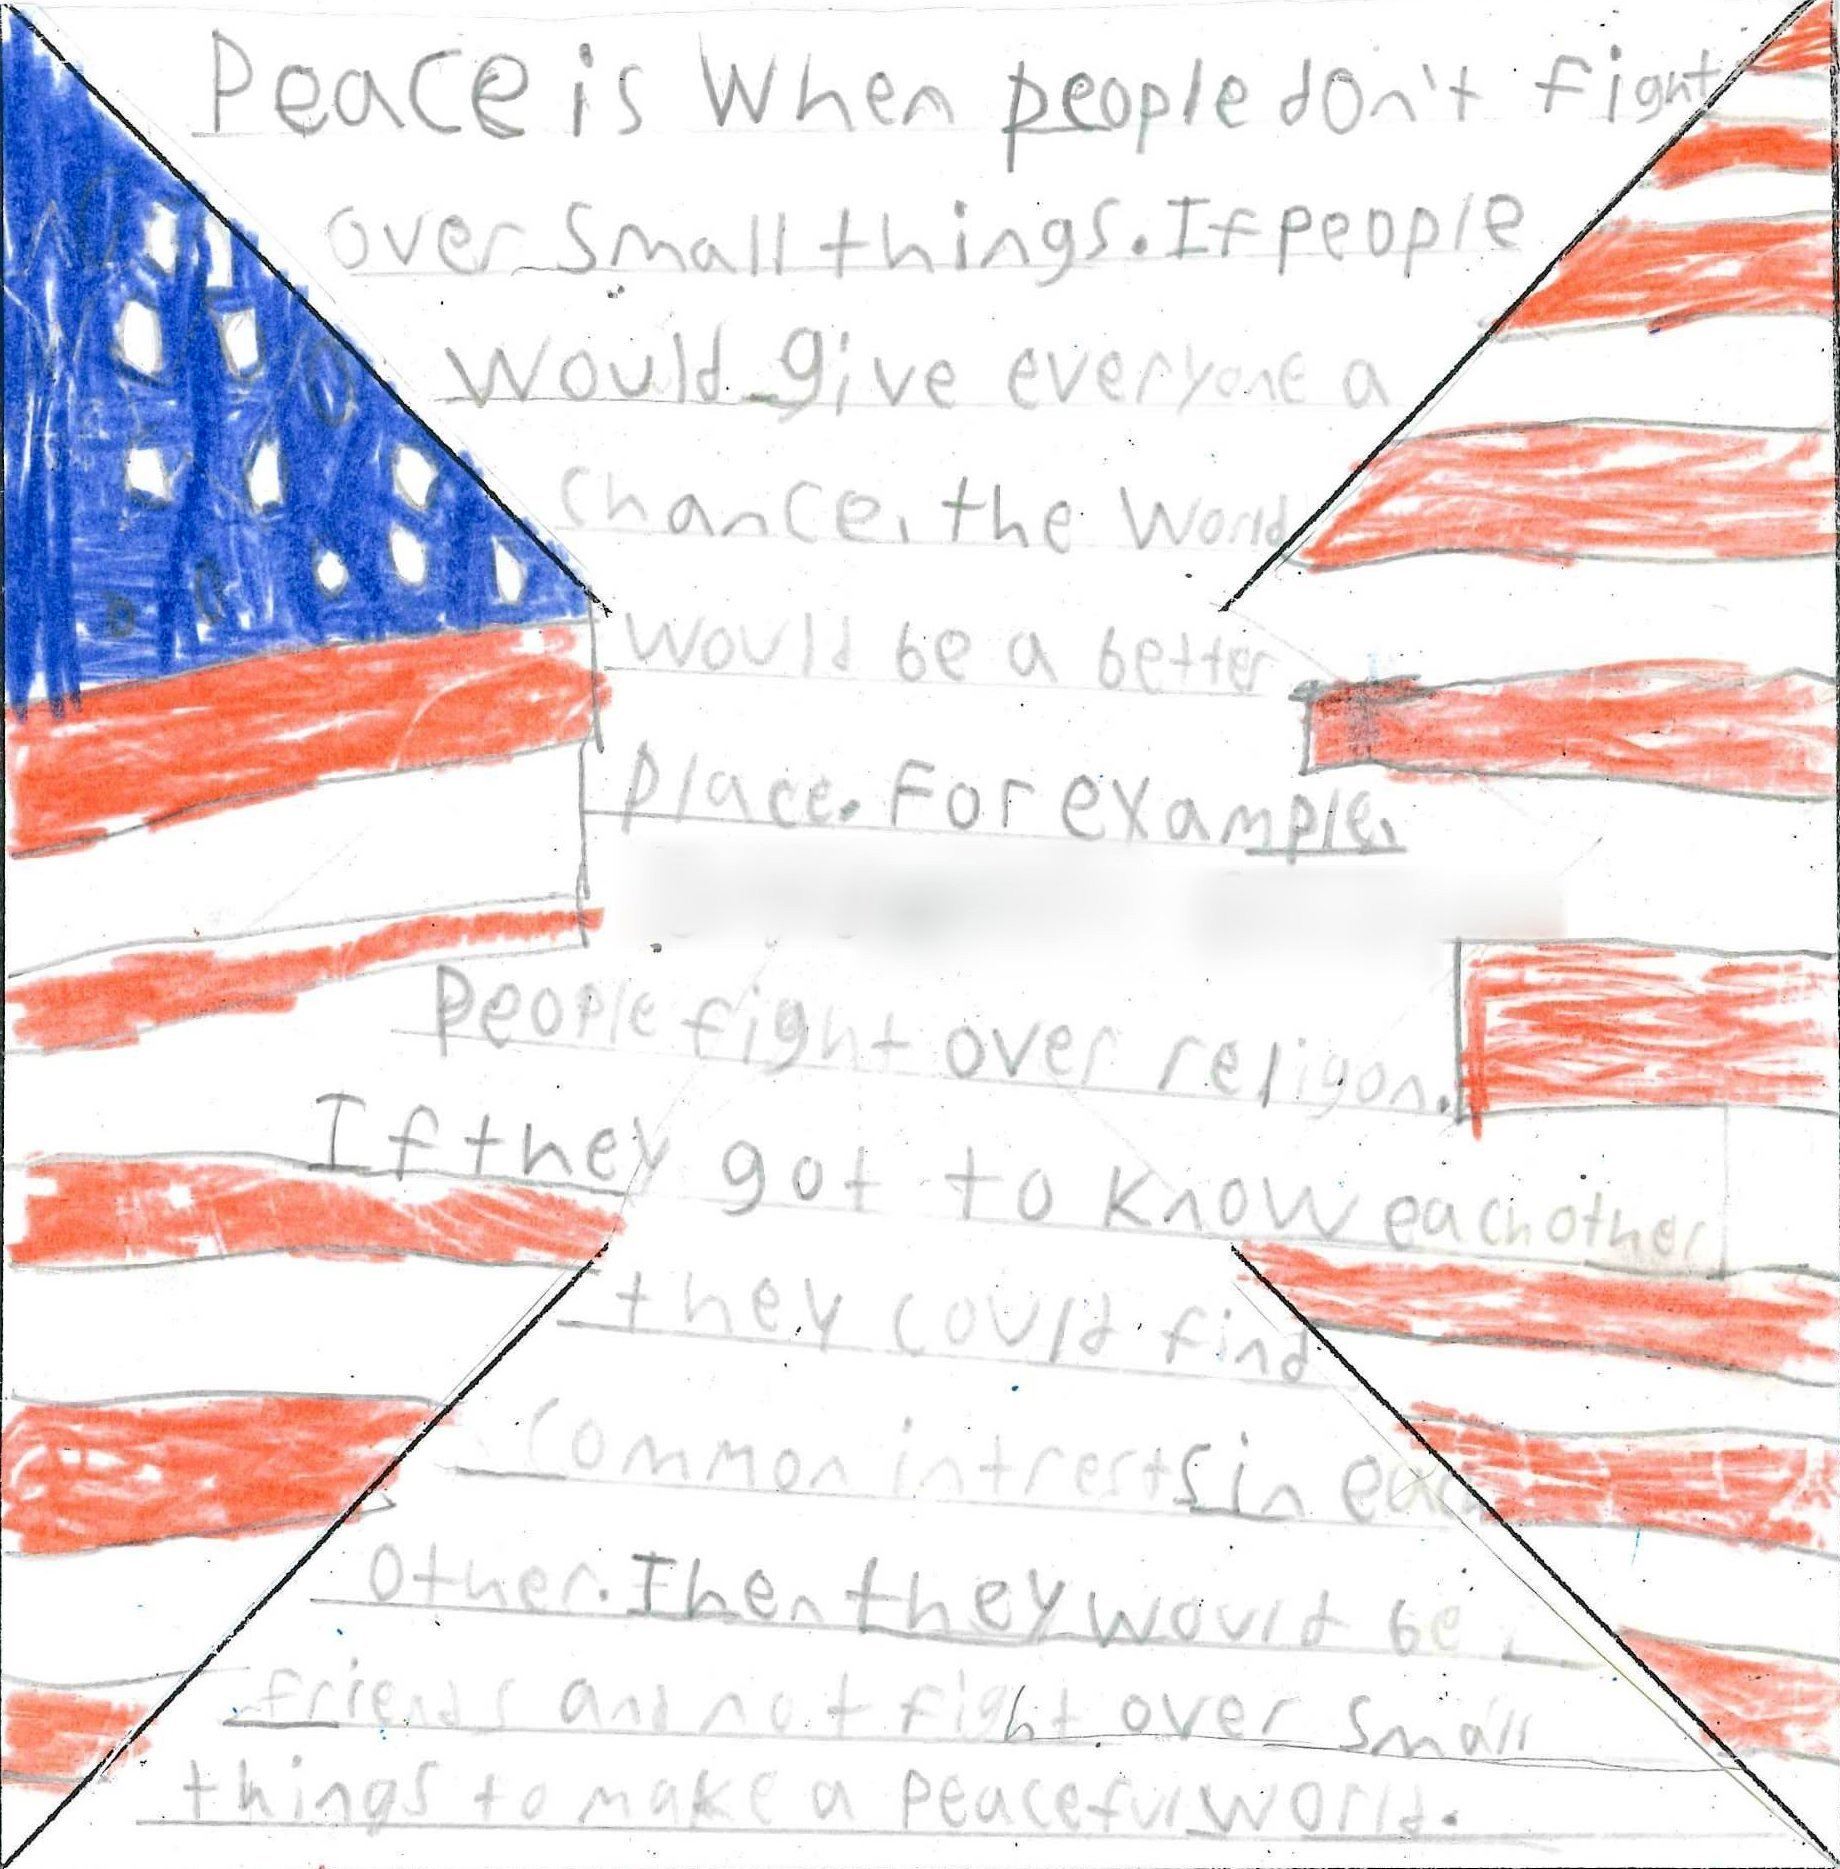 Peace is When people don't fight
over small things. If people
would give everyone a
chance, the World
would be a better
place. For example,
people fight over religon.
If they got to know each other
they could find
common intrests in each
other. Then they would be
friends and not fight over small
things to make a peaceful world.